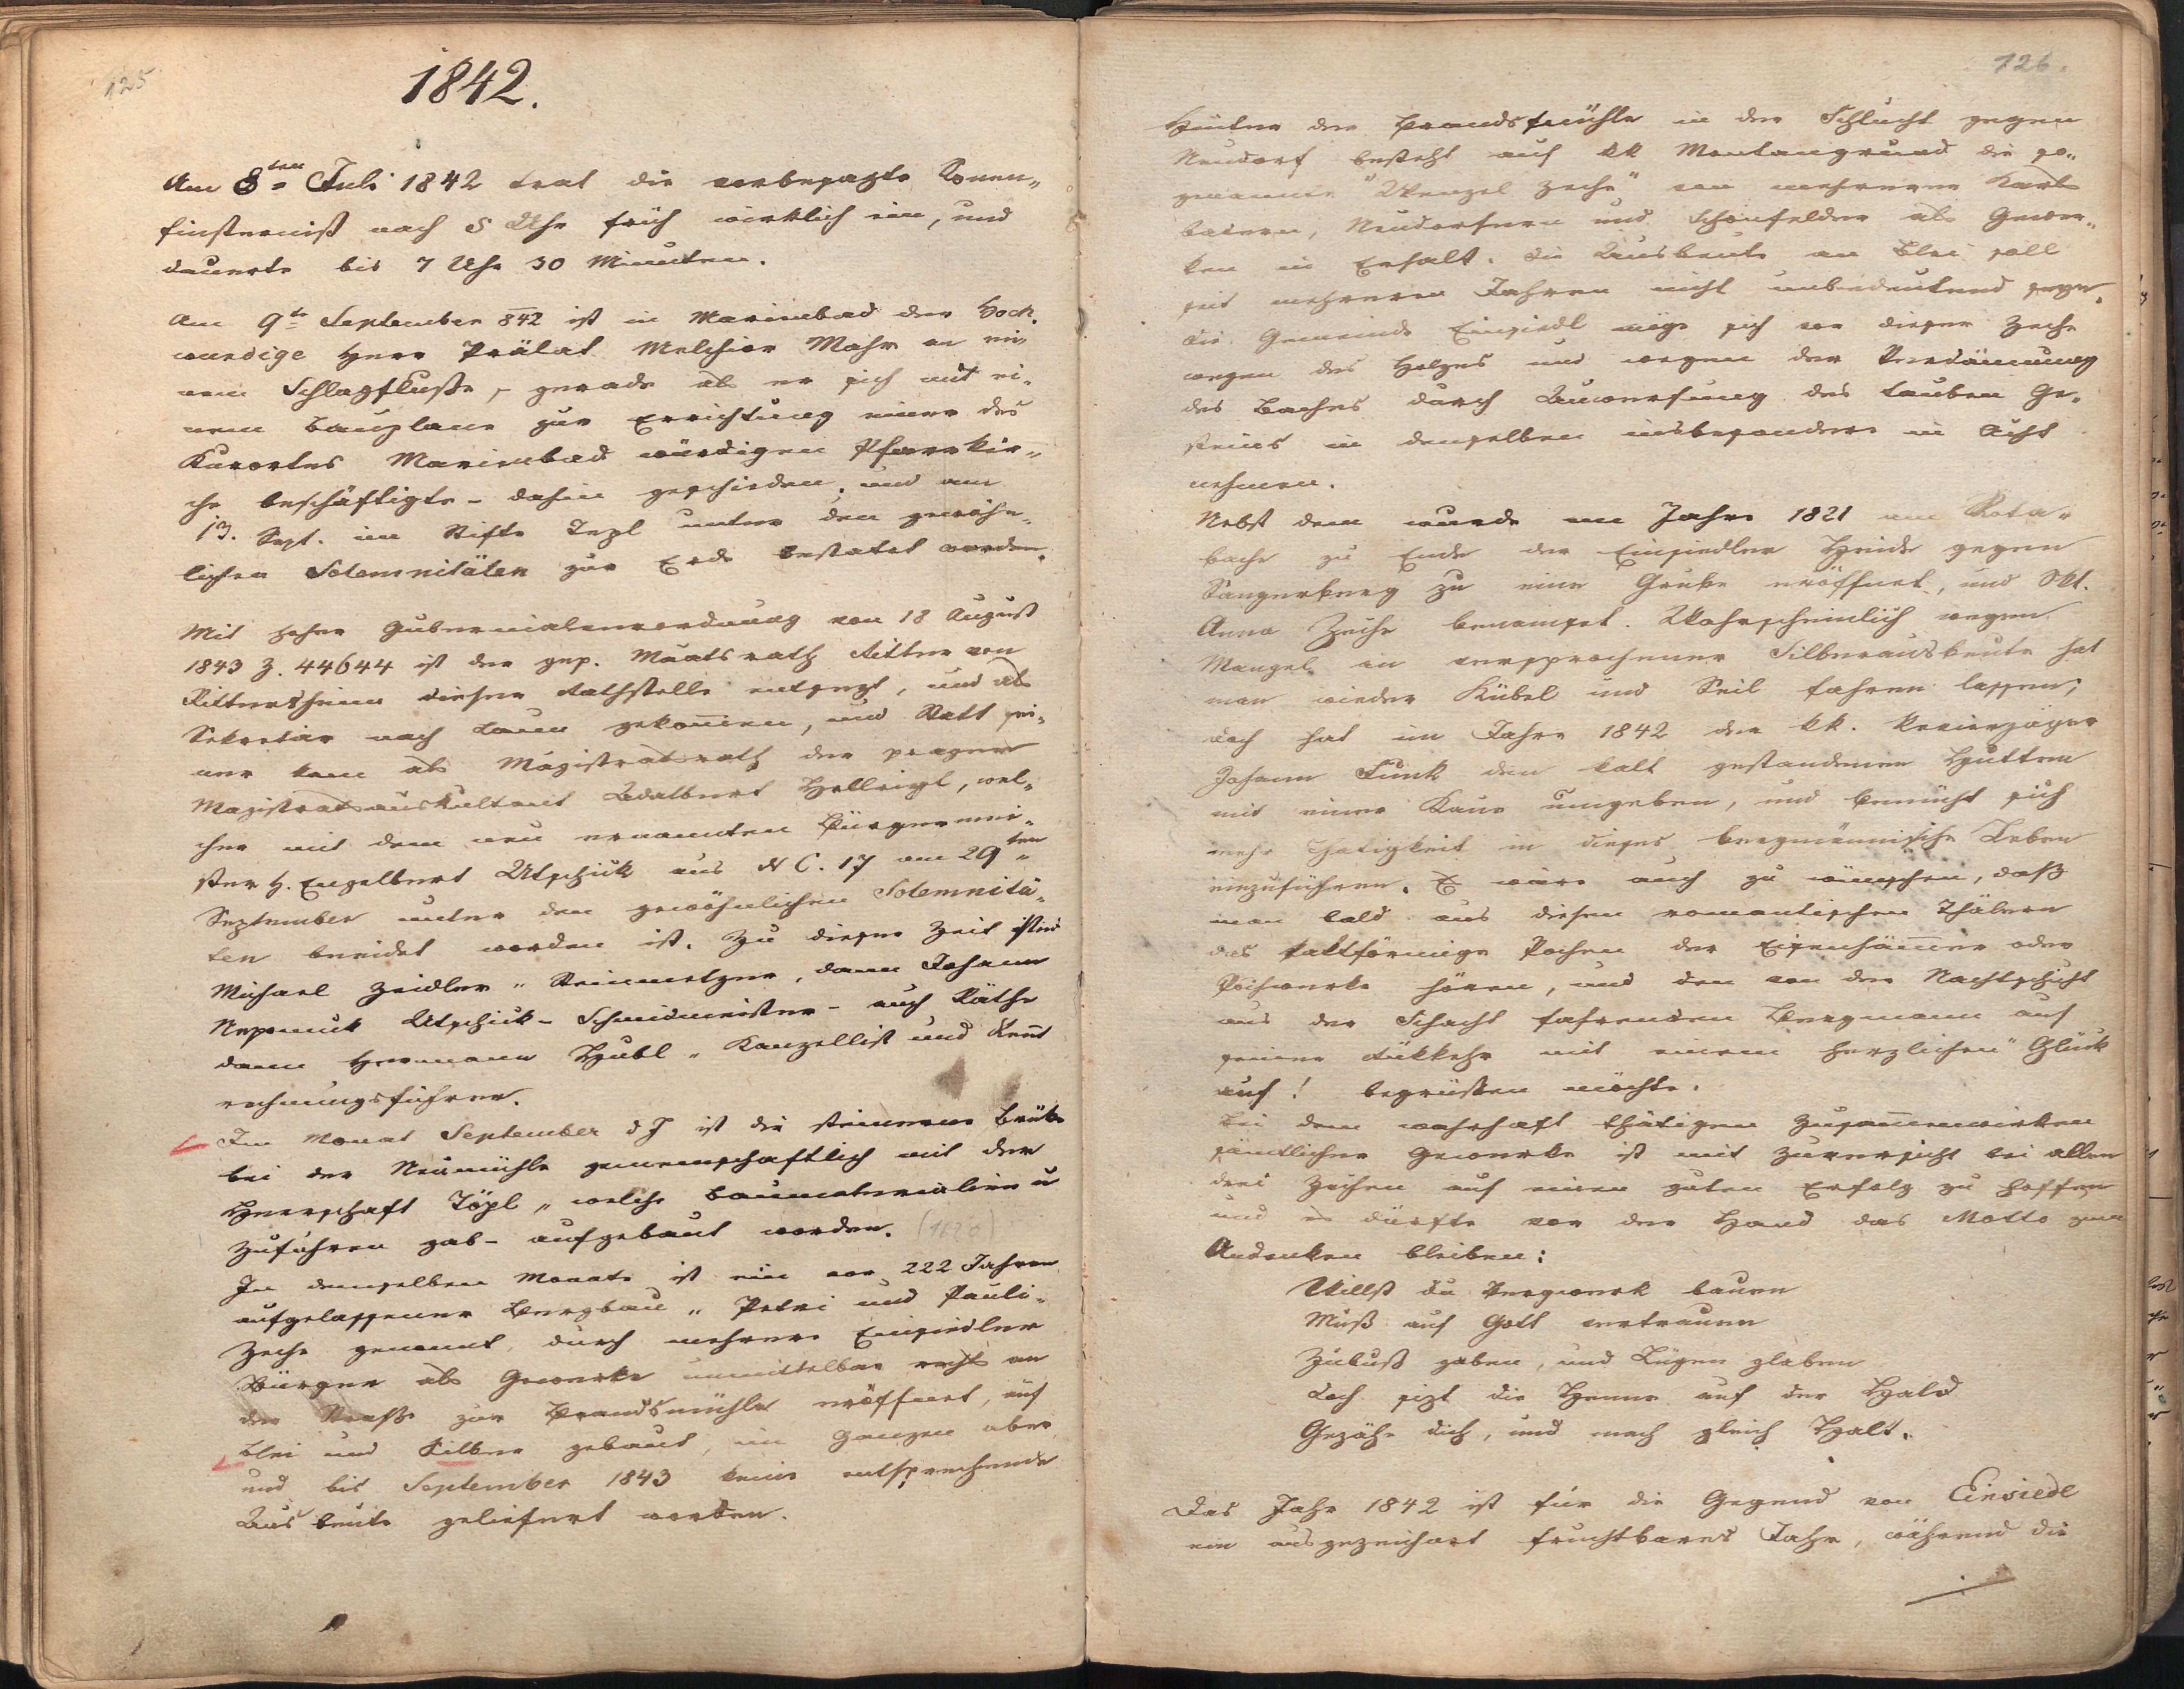 125
1842.
Am 8ten Juli 1842 trat die vorbesagte Sonen„
finsterniß nach 5 Uhr früh wirklich ein, und
dauerte bis 7 Uhr 30 Minuten.
Am 9te September 842 ist in Marienbad der Hoch„
wurdige Herr Prälat Melchior Mahr an ei„
nem Schlagfluße, gerade als er sich mit ei„
nem Bauplane zur Errichtung einer des
Kurortes Marienbad würdigen Pfarrkir„
che beschäftigte - dahin geschieden, und am
13. Sept. im Stifte Tepl unter den gewöhn„
lichen Solemnitäten zur Erde bestatet worden.
Mit hoher Gubernialverordnung von 18 August
1843 Z. 44644 ist der gep. Maatsrath Ritter von
Rittersheim dieser Rathstelle entsezt, und als
Sekretär nach Laun gekom̄en, und Statt sei„
ner kam als Magistratsrath der prager
Magistratsauskultant Adalbert Hellrigl, wel„
cher mit dem neu ernannten Bürgermei„
ster H. Engelbert Utschik aus N C. 17 am 29ten
September unter den gewöhnlichen Solemnitä„
ten beeidet worden ist. Zu dieser Zeit sind
Michael Zeidler „ Steinmetzer, dann Johann
Nepomuk Utschik - Schmidmeister - auch Räthe
dann Hermann Hubl „ Kanzellist und Rent
rechnungsführer.
Im Monat September d J ist die steinerne Brüke
bei der Neumühle gemeinschaftlich mit der
Herrschaft Töpl „ welche Baumaterialien u
Zufuhren gab - aufgebaut worden. (1620)
In demselben Monate ist ein vor 222 Jahren
aufgelassener Bergbau „ Petri und Pauli„
Zeche genannt, durch mehrere Einsiedler
Bürger als Gewerke unmittelbar rechts an
der Straße zur Brandsmühle eröffnet, auf
Blei und Silber gebaut, im Ganzen aber
und bis September 1843 keine entsprechende
Ausbeute geliefert worden.
126.
Hinter der Brandsmühle in der Schlucht gegen
Neudorf besteht auf kk Montangrund die so„
genannte "Wenzel Zeche" von mehreren Karls
badern, Neudorfern und Schönfelder als Gewer„
ken in Erhalt. Die Ausbeute an Blei soll
seit mehreren Jahren nicht unbedeutend seyn.
Die Gemeinde Einsiedl möge sich vor dieser Zeche
wegen des Holzes und wegen der Verdämmung
des Baches durch Anwerfung des tauben Ge„
steins in denselben insbesondere in Acht
nehmen.
Nebst dem wurde im Jahre 1821 am Rota„
bache zu Ende der Einsiedler Heide gegen
Sangerberg zu eine Grube eröffnet, und Skt.
Anna Zeche benamset. Wahrscheinlich wegen
Mangel an versprochener Silberausbeute hat
man wieder Kübel und Seil fahren lassen;
doch hat im Jahre 1842 der kk. Revierjäger
Johann Funk den kalt gestandenen Hutten
mit einer Kaue umgeben, und bemüht sich
mehr Thätigkeit in dieses bergmännische Leben
einzuführen. Es wäre auch zu wünschen, daß
man bald aus diesen romantischen Thälern
das taktförmige Pochen der Eisenhäm̄er oder
Pochwerke hören, und den von der Nachtschicht
aus der Schacht fahrenden Bergmann auf
seiner Rükkehr mit einem herzlichen "Glück
auf! begrüßen möchte.
Bei dem wahrhaft thätigen Zusam̄enwirken
sämtlicher Gewerke ist mit Zuversicht bei allen
drei Zechen auf einen guten Erfolg zu hoffen
und es dürfte vor der Hand das Motto zum
Andenken bleiben:
Willst du Bergwerk bauen
Muß auf Gott vertrauen
Zubuß gaben, und Lügen glaben
Doch sizt die Henne auf der Hald
Gezähe dich, und mach gleich Halt.
Das Jahr 1842 ist für die Gegend von Einsiedl
ein ausgezeichnet fruchtbares Jahr, während die